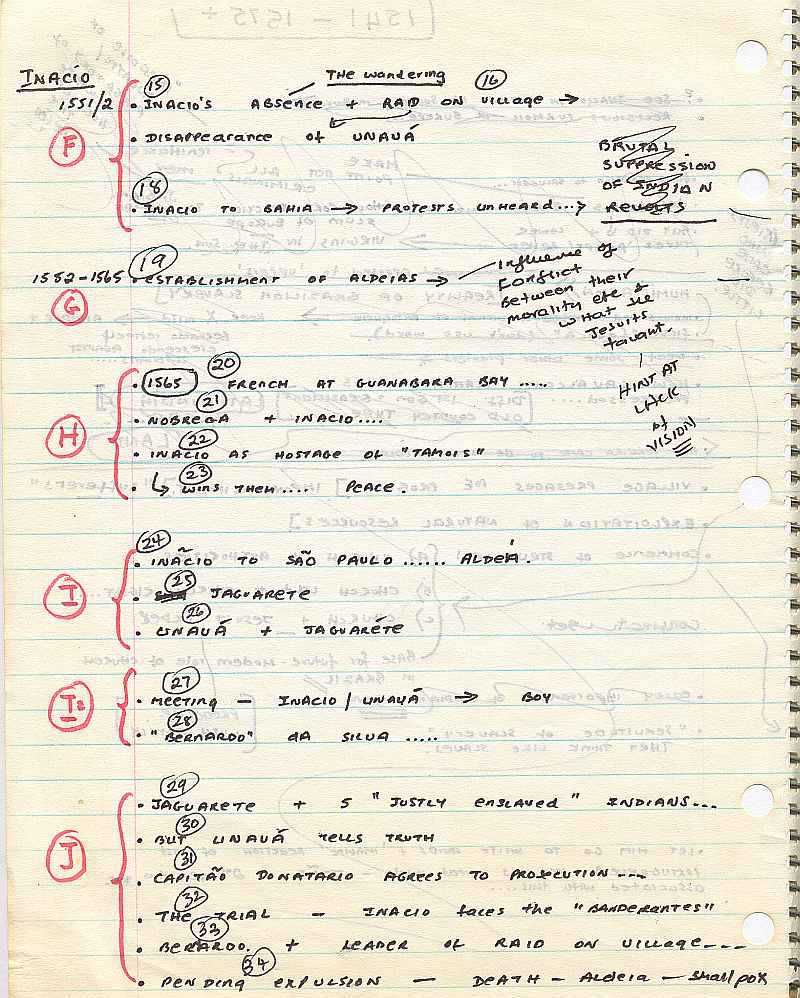 INACIO
THE wandering
15 16
1551/2 • INACIO'S ABSENCE + RAID ON VILLAGE →
F
• DISAPPEARANCE OF UNAUÁ
BRUTAL
SUPPRESSION
OF INDIAN
REVOLTS
18
• INACIO TO BAHIA → PROTESTS UNHEARD...→
19
1552-1565 • ESTABLISHMENT OF ALDEIAS →
G
Influence of
Conflict
Between their
morality etc &
what the
Jesuits
taught.
HINT AT
LACK
of
VISION
20
• 1565 FRENCH AT GUANABARA BAY .....
21
• NOBREGA + INACIO....
H
22
• INACIO AS HOSTAGE OF "TAMOIS"
23
• ↳ WINS THEM .... PEACE.
24
• INÃCIO TO SÃO PAULO ...... ALDEÍA.
25
I
• JAGUARETE
26
• UNAUÁ + JAGUARÉTE
27
• MEETING — INACIO / UNAUÁ → BOY
I2
28
• "BERNARDO" dA SILVA .....
29
• JAGUARETE + 5 "JUSTLY ENSLAVED" INDIANS...
30
• BUT UNAUÁ TELLS TRUTH
31
J
• CAPITÃO DONATARIO AGREES TO PROSECUTION ---
32
• THE TRIAL — INACIO faces the "BANDERANTES"
33
• BERARDO. + LEADER OF RAID ON VILLAGE---
34
• PENDING EXPULSION — DEATH — AldEiA — smallpox